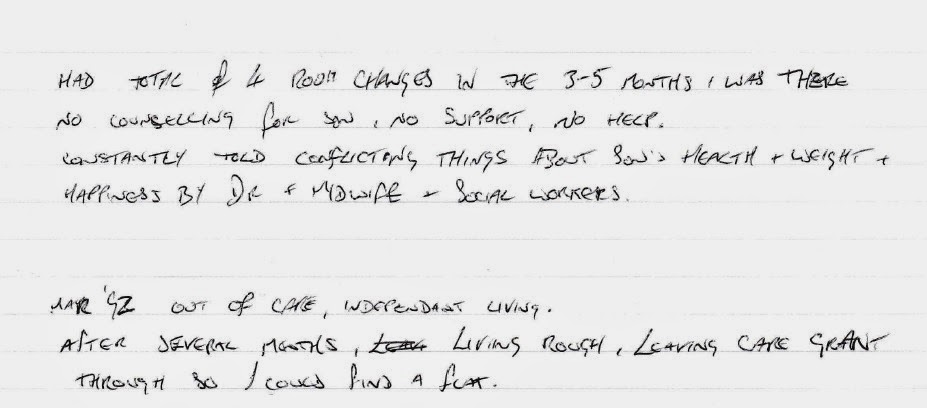 HAD TOTAL of 4 ROOM CHANGES IN THE 3-5 MONTHS I WAS THERE
NO COUNSELLING for SON, NO SUPPORT, NO HELP.
CONSTANTLY TOLD CONFLICTING THINGS ABOUT SON'S HEALTH + WEIGHT +
HAPPINESS BY DR + MIDWIFE + SOCIAL WORKERS.
MAR '92 OUT OF CARE, INDEPENDANT LIVING.
AFTER SEVERAL MONTHS, LIVING ROUGH, LEAVING CARE GRANT
THROUGH SO I COULD FIND A FLAT.